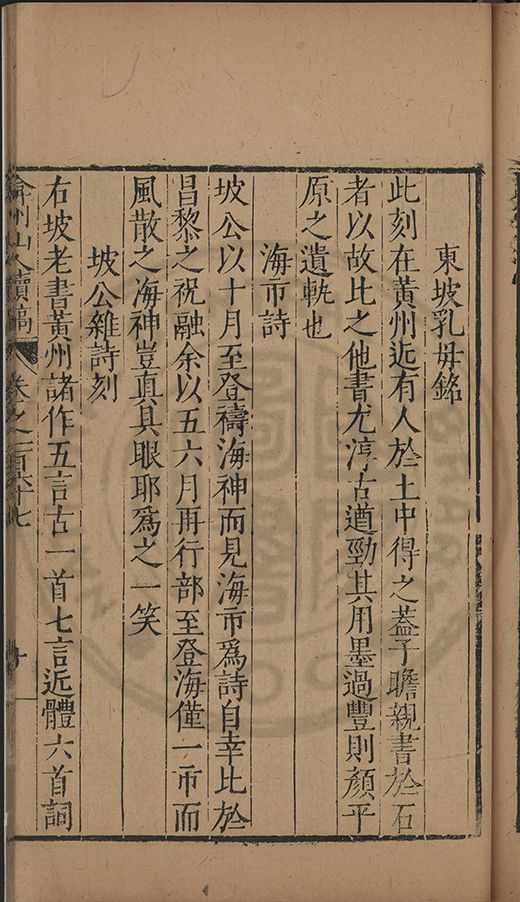 東坡乳母銘
此刻在黃州近有人於土中得之蓋子瞻親書於石
者以故比之他書尤淳古遒勁其用墨過豐則顏平
原之遺軌也
海市詩
坡公以十月至登禱海神而見海市為詩自幸比於
昌黎之祝融余以五六月再行部至登海僅一市而
風散之海神豈真具眼耶為之一笑
坡公雜詩刻
右坡老書黃州諸作五言古一首七言近體六首詞
弇州山人續稿 卷之一百六十七 十